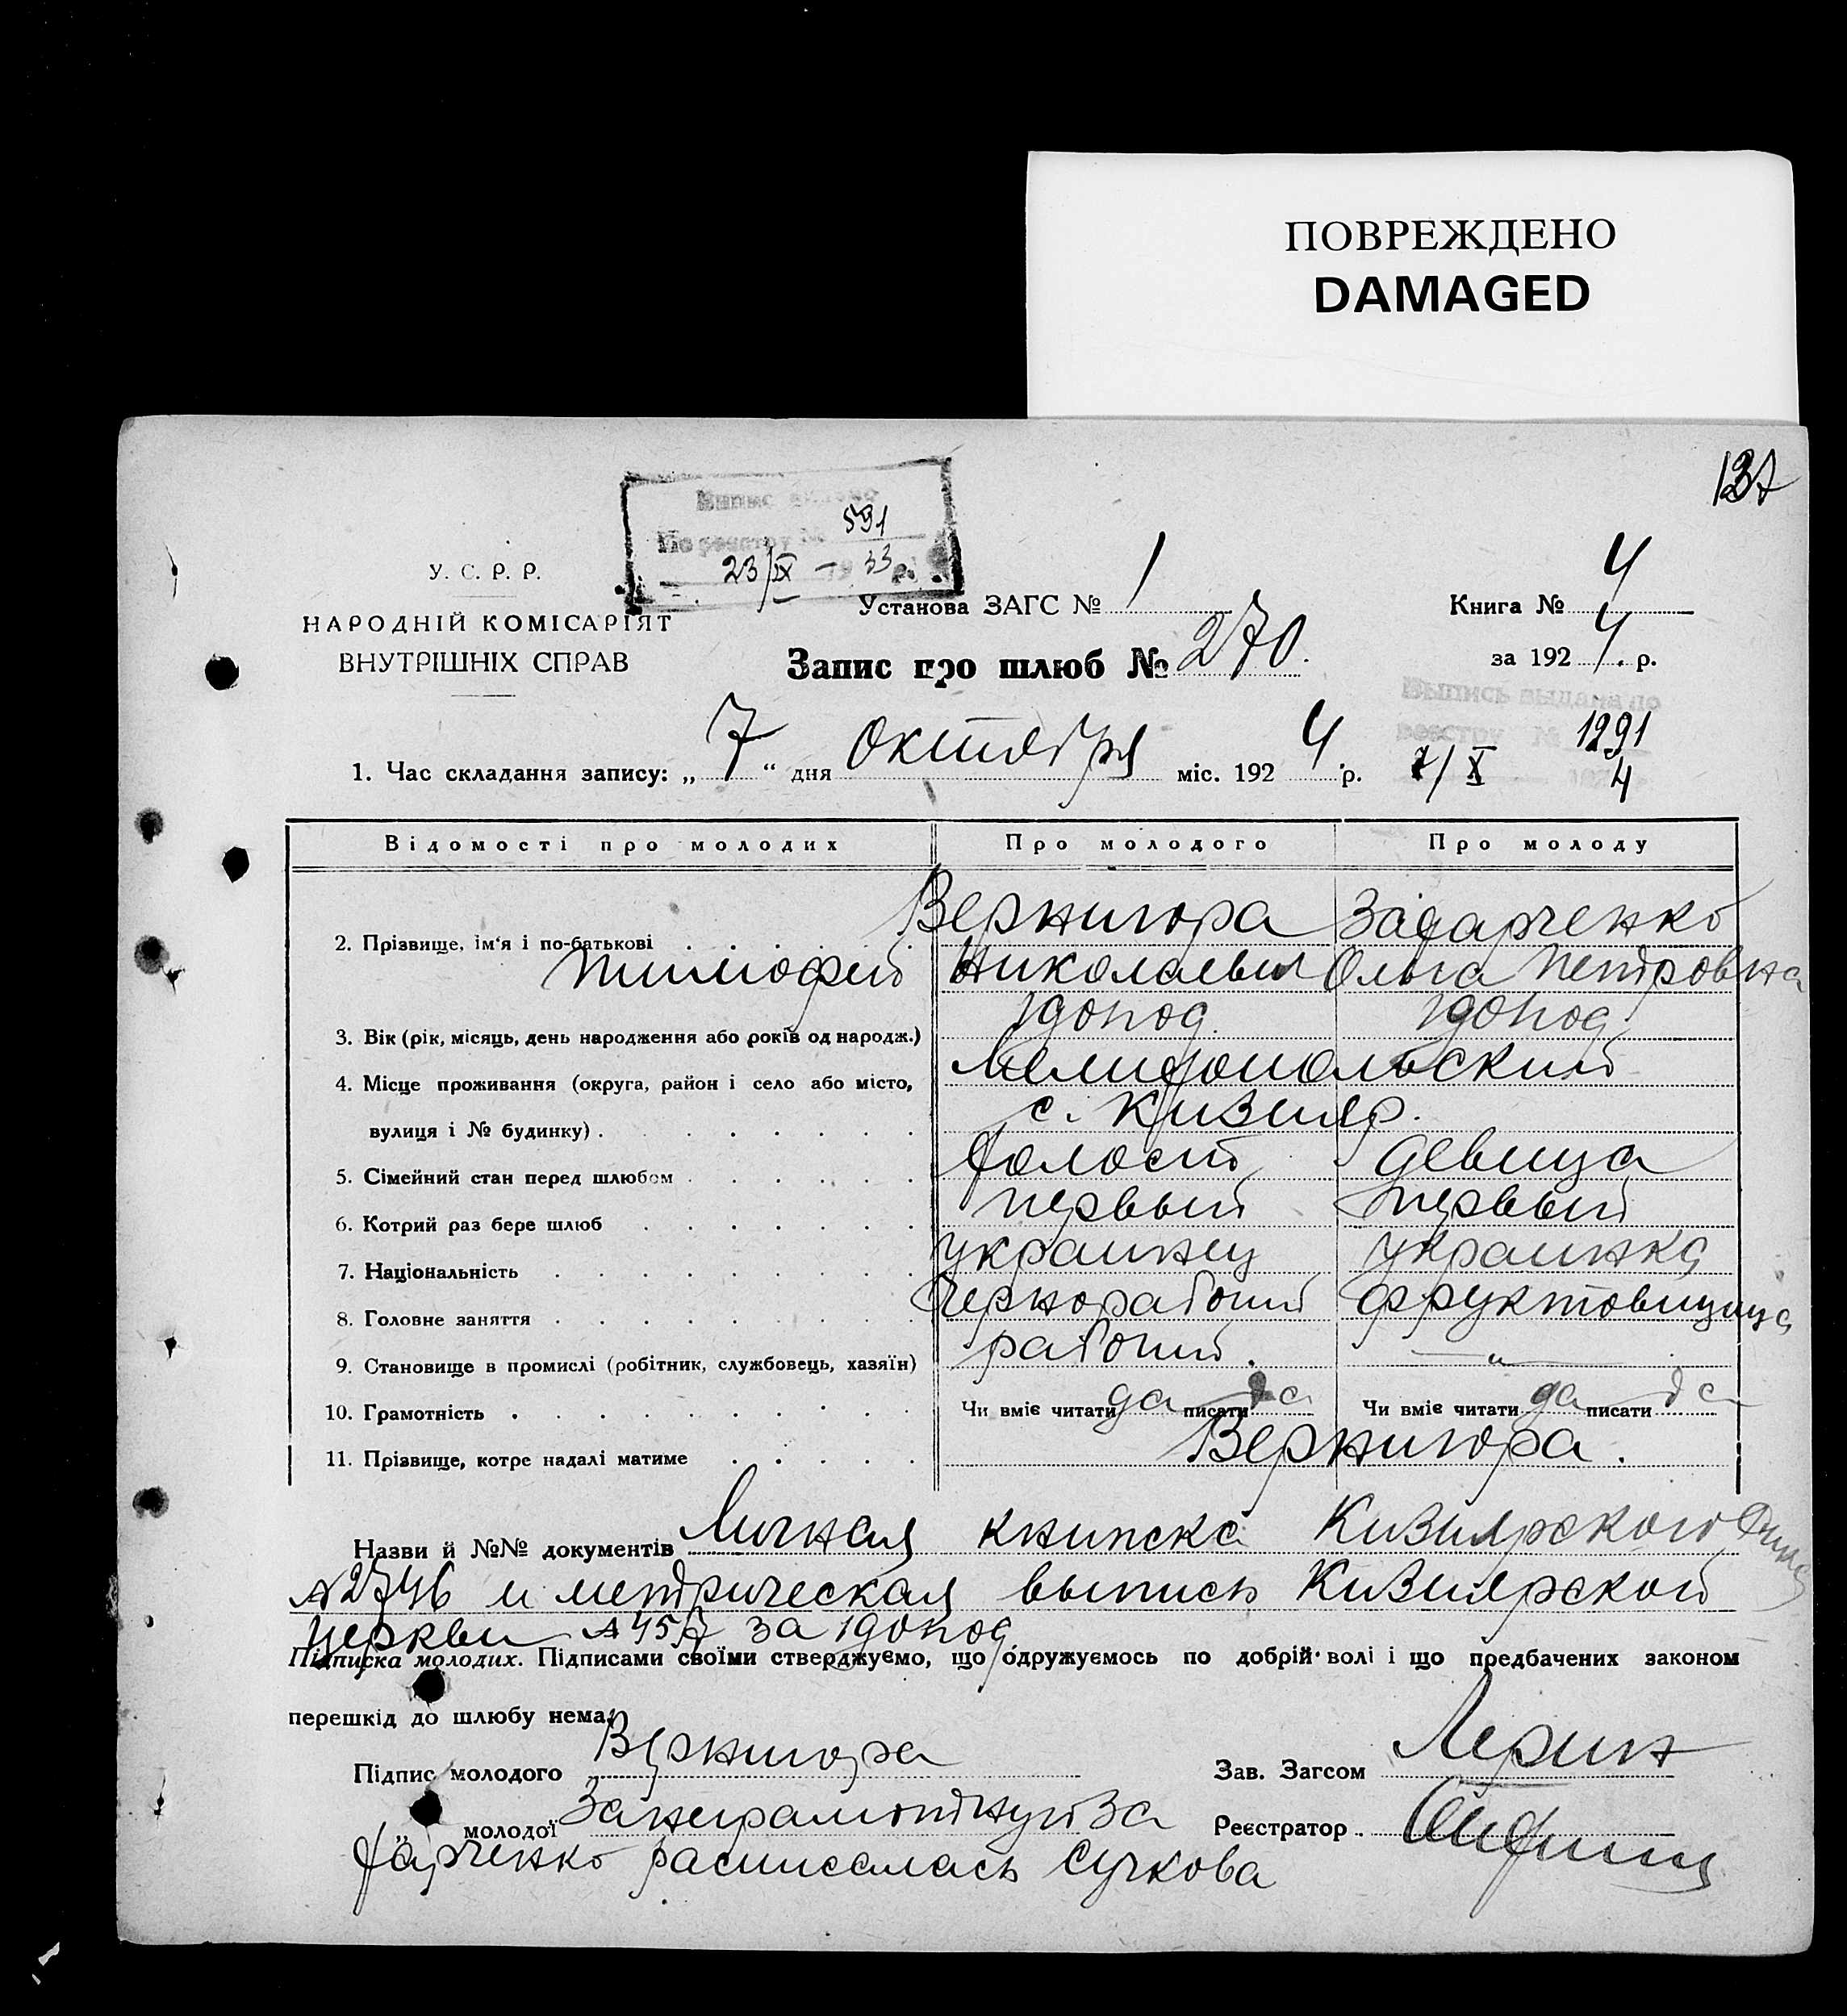 ПОВРЕЖДЕНО
DAMAGED
137
Випис видано
По реєстру № 591
23/IX – 1933 р.
У. С. Р. Р.
НАРОДНІЙ КОМІСАРІЯТ
ВНУТРІШНІХ СПРАВ
Установа ЗАГС № 1
Книга № 4
за 1924 р.
Запис про шлюб № 270.
Выпись выдана по
реестру № 1291
7/X 4
1. Час складання запису: „7“ дня октября міс. 1924 р.
Відомості про молодих Про молодого Про молоду
2. Прізвище, ім'я і по-батькові Вернигора Захарченко
Тимофей Николаевич Ольга Петровна
3. Вік (рік, місяць, день народження або років од народж.) 190 год. 190 год
4. Місце проживання (округа, район і село або місто, Мелитопольский
вулиця і № будинку) с. Кизияр.
5. Сімейний стан перед шлюбом холост девица
6. Котрий раз бере шлюб первый первый
7. Національність украинец украинка
8. Головне заняття Чернорабочий фруктовщица
9. Становище в промислі (робітник, службовець, хазяїн) рабочий. — „ —
10. Грамотність Чи вміє читати да писати да Чи вміє читати да писати да
11. Прізвище, котре надалі матиме Вернигора.
Назви й №№ документів Личная книжка Кизиярского
№ 2746 и метрическая выпись Кизиярской
церкви № 457 за 190 год.
Підписка молодих. Підписами своїми стверджуємо, що одружуємось по добрій волі і що предбачених законом
перешкід до шлюбу нема.
Підпис молодого Вернигора
Зав. Загсом
„ молодої За неграмотную За
Реєстратор
харченко расписалась Сучкова